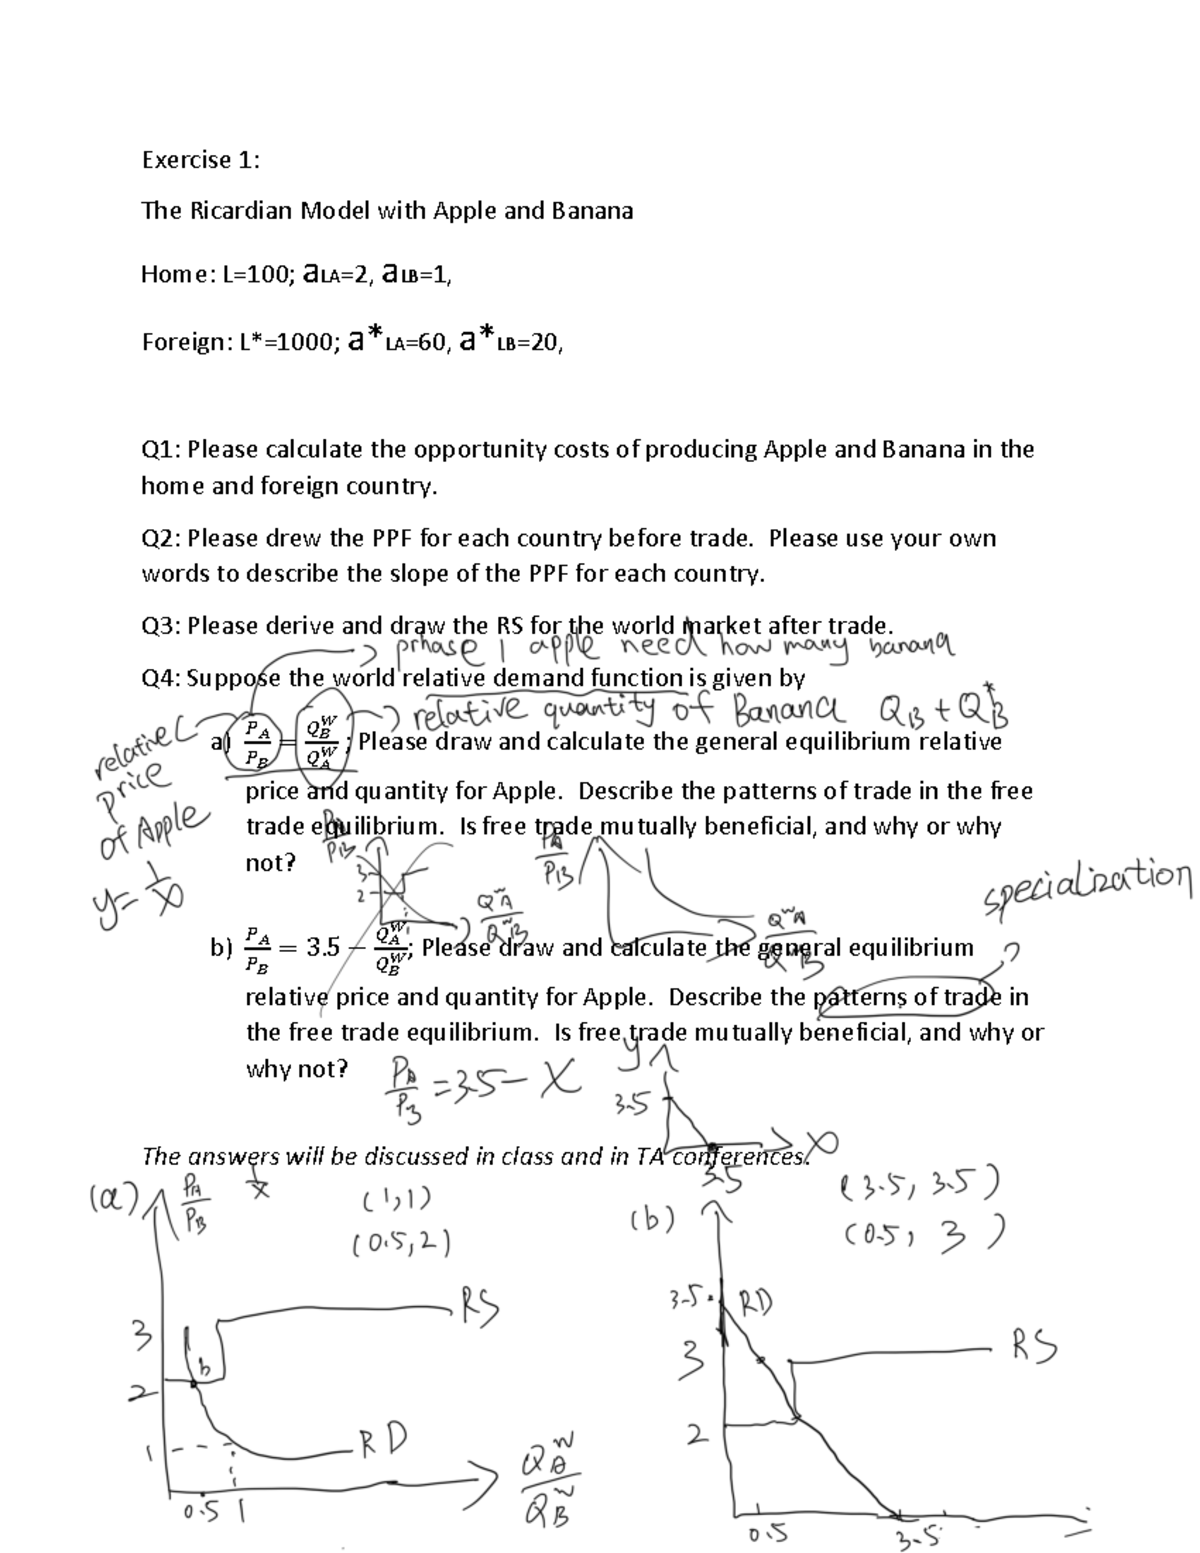 Exercise 1:
The Ricardian Model with Apple and Banana
Home: L=100; aLA=2, aLB=1,
Foreign: L*=1000; a*LA=60, a*LB=20,
Q1: Please calculate the opportunity costs of producing Apple and Banana in the
home and foreign country.
Q2: Please drew the PPF for each country before trade. Please use your own
words to describe the slope of the PPF for each country.
Q3: Please derive and draw the RS for the world market after trade.
prhase 1 apple need how many banana
Q4: Suppose the world relative demand function is given by
relative quantity of Banana QB + Q*B
relative price of Apple
y = 1/x
a) PA/PB = QWB/QWA; Please draw and calculate the general equilibrium relative
price and quantity for Apple. Describe the patterns of trade in the free
trade equilibrium. Is free trade mutually beneficial, and why or why
not?
PA/PB
3
2
QWA/QWB
PA/PB
QWA/QWB
specialization
?
b) PA/PB = 3.5 − QWA/QWB; Please draw and calculate the general equilibrium
relative price and quantity for Apple. Describe the patterns of trade in
the free trade equilibrium. Is free trade mutually beneficial, and why or
why not?
PA/PB = 3.5 - x
y
3.5
x
3.5
The answers will be discussed in class and in TA conferences.
(a) PA/PB
1/x
(1,1)
(0.5,2)
3
2
1
b
RS
RD
0.5 1
QWA/QWB
(b)
(3.5, 3.5)
(0.5, 3)
3.5
RD
3
RS
2
0.5
3.5